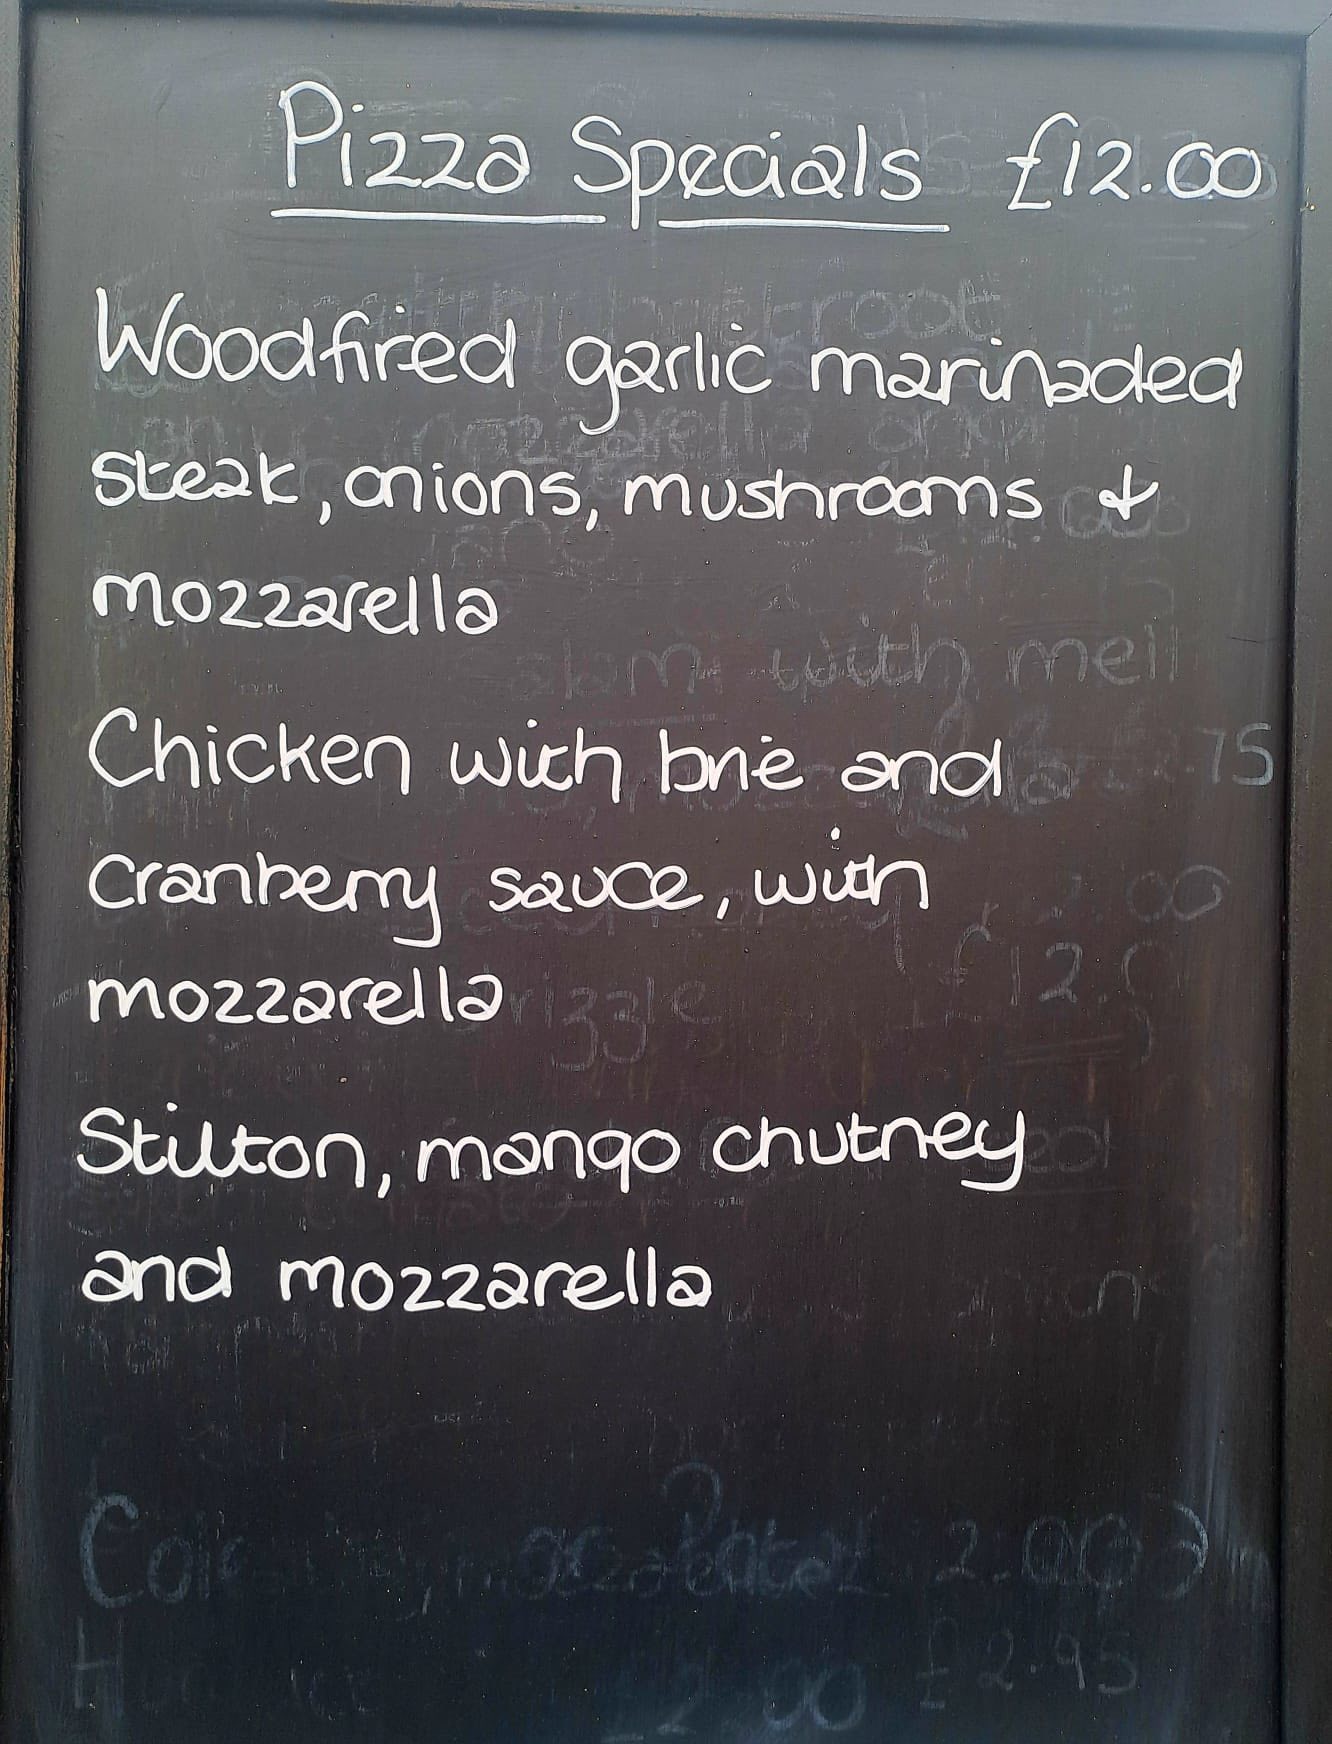 Pizza Specials £12.00
Woodfired garlic marinaded
steak, onions, mushrooms &
mozzarella
Chicken with brie and
cranberry sauce, with
mozzarella
Stilton, mango chutney
and mozzarella